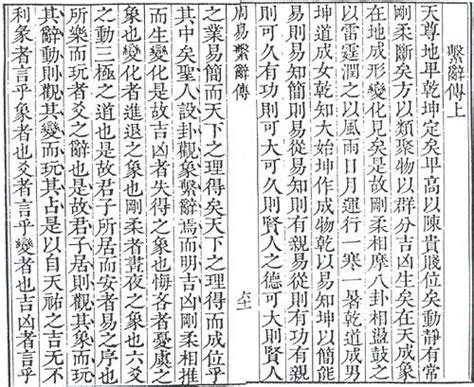 繫辭傳上
天尊地卑乾坤定矣卑高以陳貴賤位矣動靜有常
剛柔斷矣方以類聚物以群分吉凶生矣在天成象
在地成形變化見矣是故剛柔相摩八卦相盪鼓之
以雷霆潤之以風雨日月運行一寒一暑乾道成男
坤道成女乾知大始坤作成物乾以易知坤以簡能
易則易知簡則易從易知則有親易從則有功有親
則可久有功則可大可久則賢人之德可大則賢人
周易繫辭傳
之業易簡而天下之理得矣天下之理得而成位乎
其中矣聖人設卦觀象繫辭焉而明吉凶剛柔相推
而生變化是故吉凶者失得之象也悔吝者憂虞之
象也變化者進退之象也剛柔者晝夜之象也六爻
之動三極之道也是故君子所居而安者易之序也
所樂而玩者爻之辭也是故君子居則觀其象而玩
其辭動則觀其變而玩其占是以自天祐之吉无不
利彖者言乎象者也爻者言乎變者也吉凶者言乎